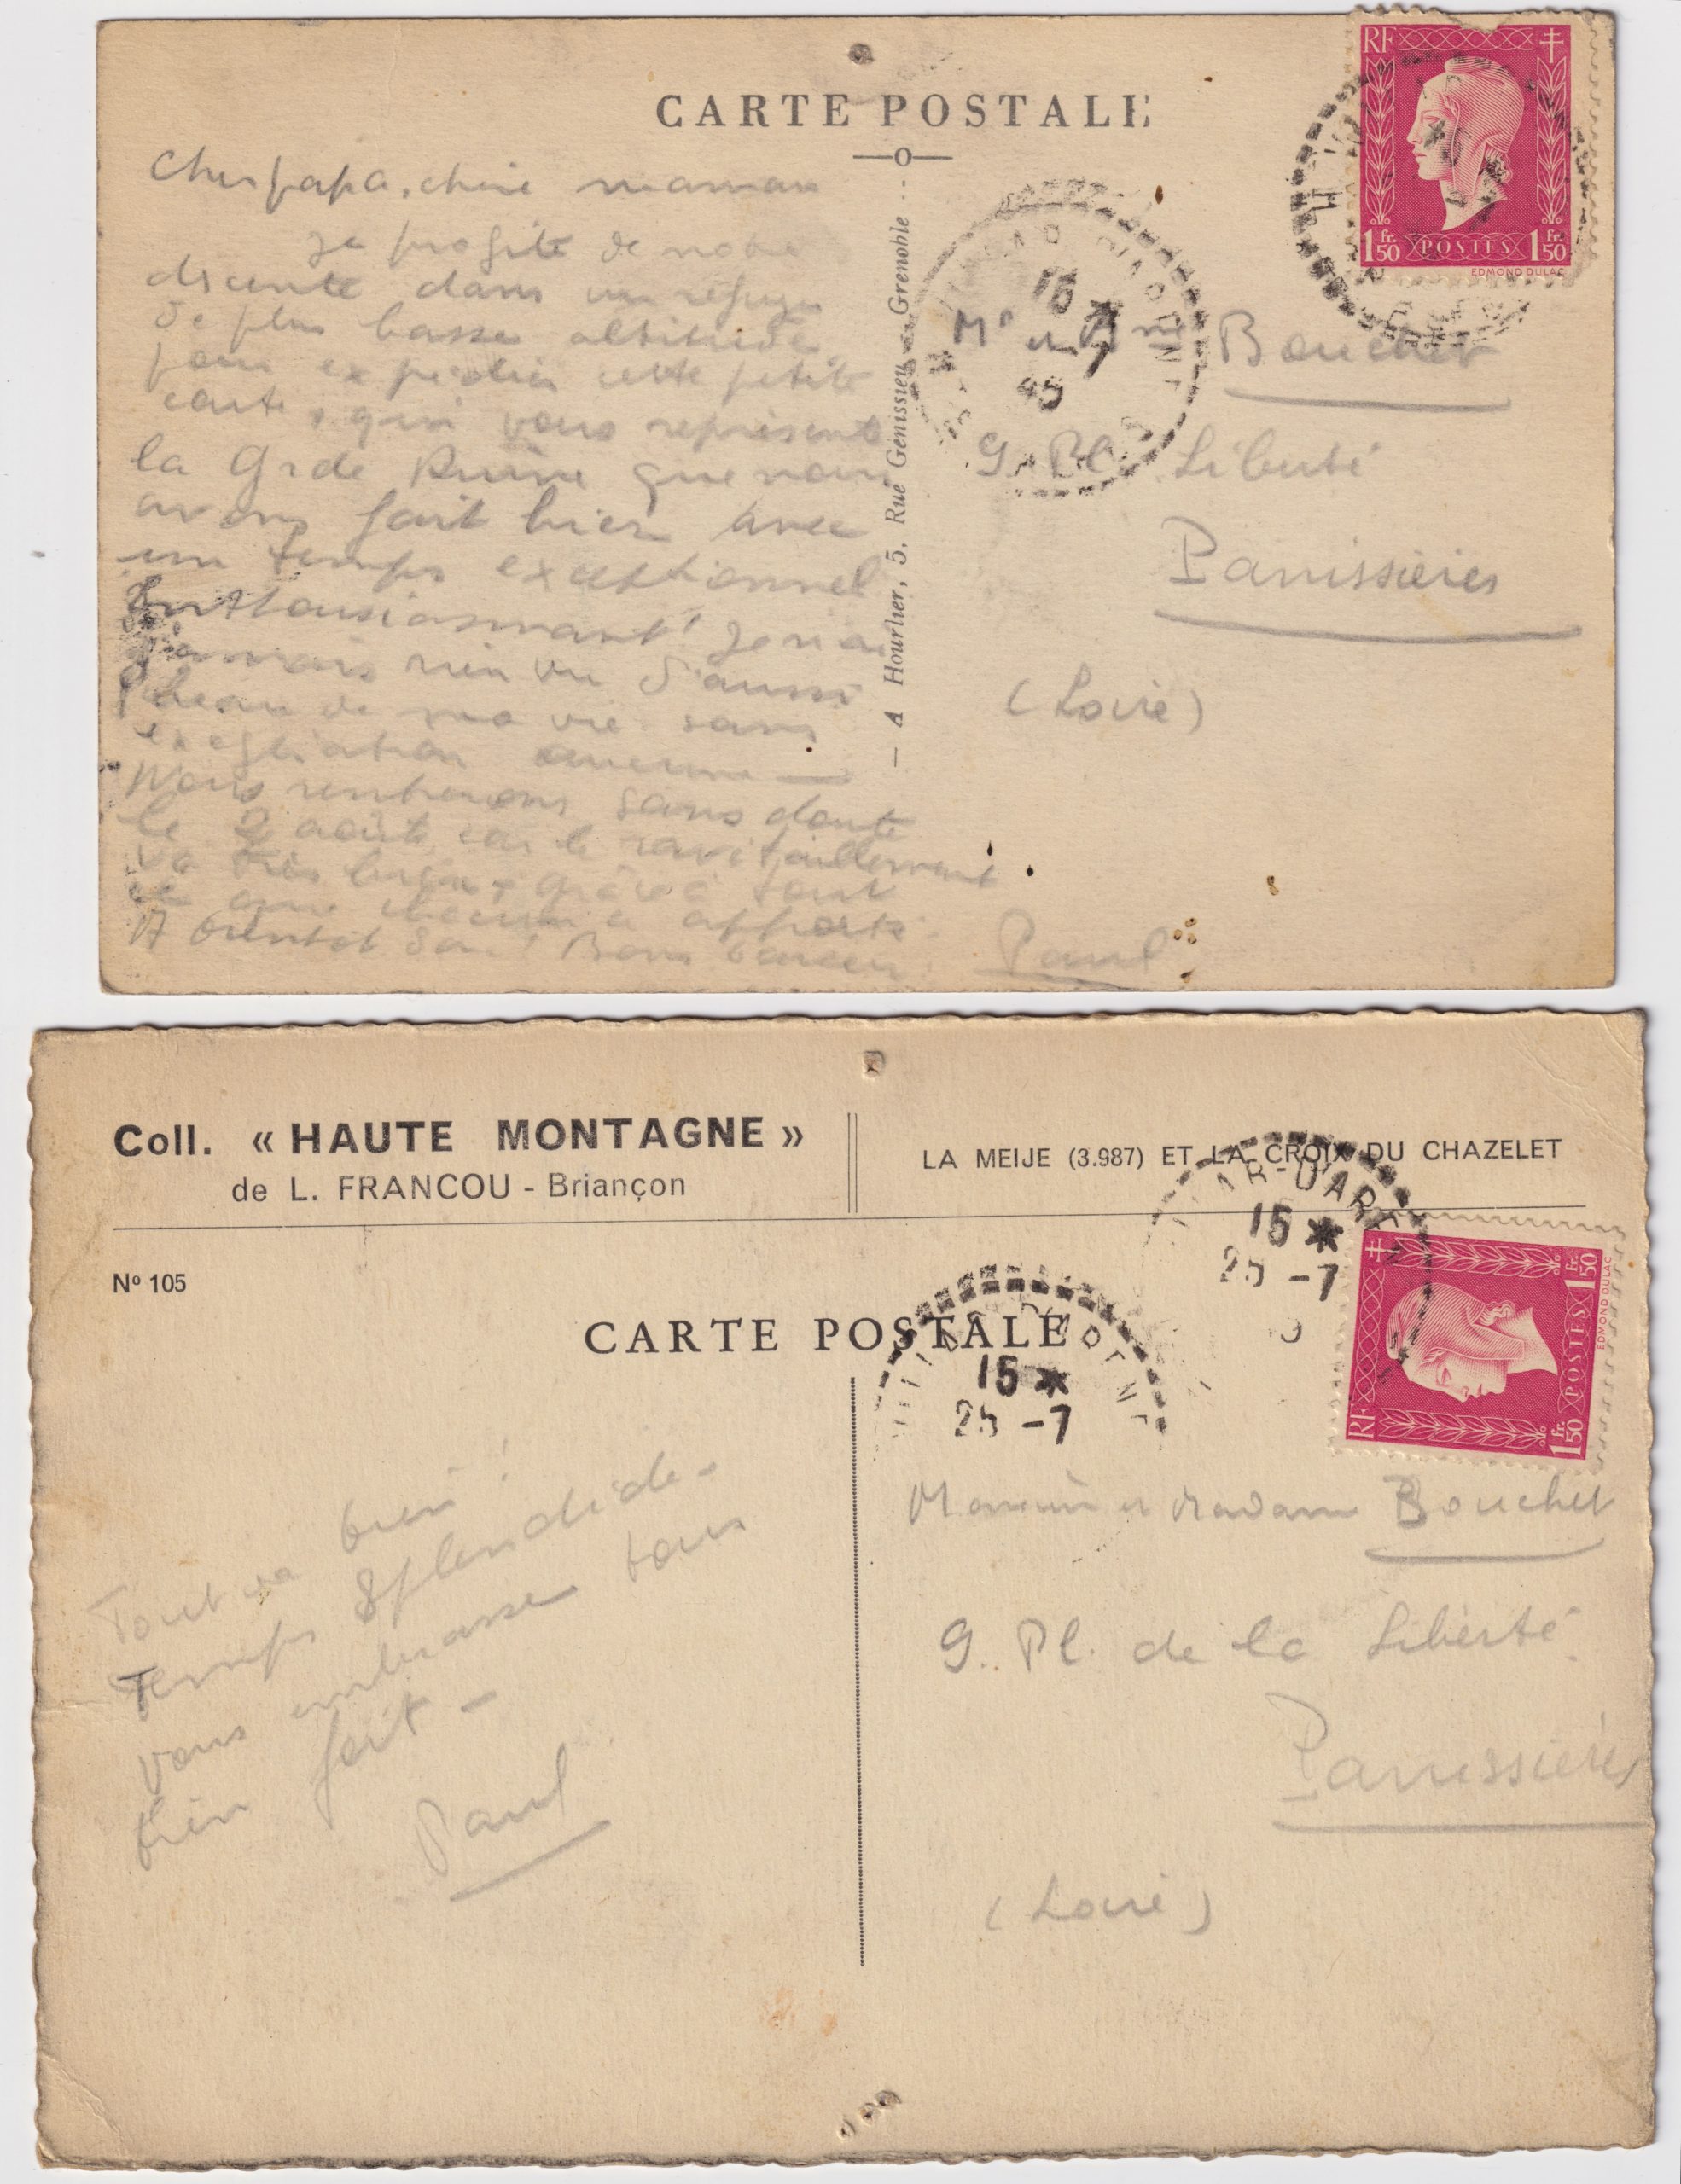 CARTE POSTALE
RF
1Fr.50 POSTES 1Fr.50
EDMOND DULAC
Cher papa, chère maman
Je profite de notre
descente dans un refuge
de plus basse altitude
pour expédier cette petite
carte, qui vous représente
la Grde Ruine que nous
avons fait hier avec
un temps exceptionnel
Enthousiasmant! Je n'ai
jamais rien vu d'aussi
beau de ma vie sans
exagération aucune —
Nous rentrerons sans doute
le 2 août car le ravitaillement
va très bien grâce à tout
ce que chacun a apporté.
A bientôt Bons baisers
Paul
— A Hourlier, 5, Rue Génissieu - Grenoble
16 *
-7
45
Mr et Mme Boucher
9. Pl. Liberté
Panissières
(Loire)
Coll. « HAUTE MONTAGNE »
de L. FRANCOU - Briançon
LA MEIJE (3.987) ET LA CROIX DU CHAZELET
No 105
CARTE POSTALE
15 *
25 -7
15 *
25 -7
RF
1Fr.50 POSTES 1Fr.50
EDMOND DULAC
Tout va bien!
Temps splendide -
vous embrasse tous
bien fort -
Paul
Monsieur et Madame Boucher
9. Pl. de la Liberté
Panissières
(Loire)